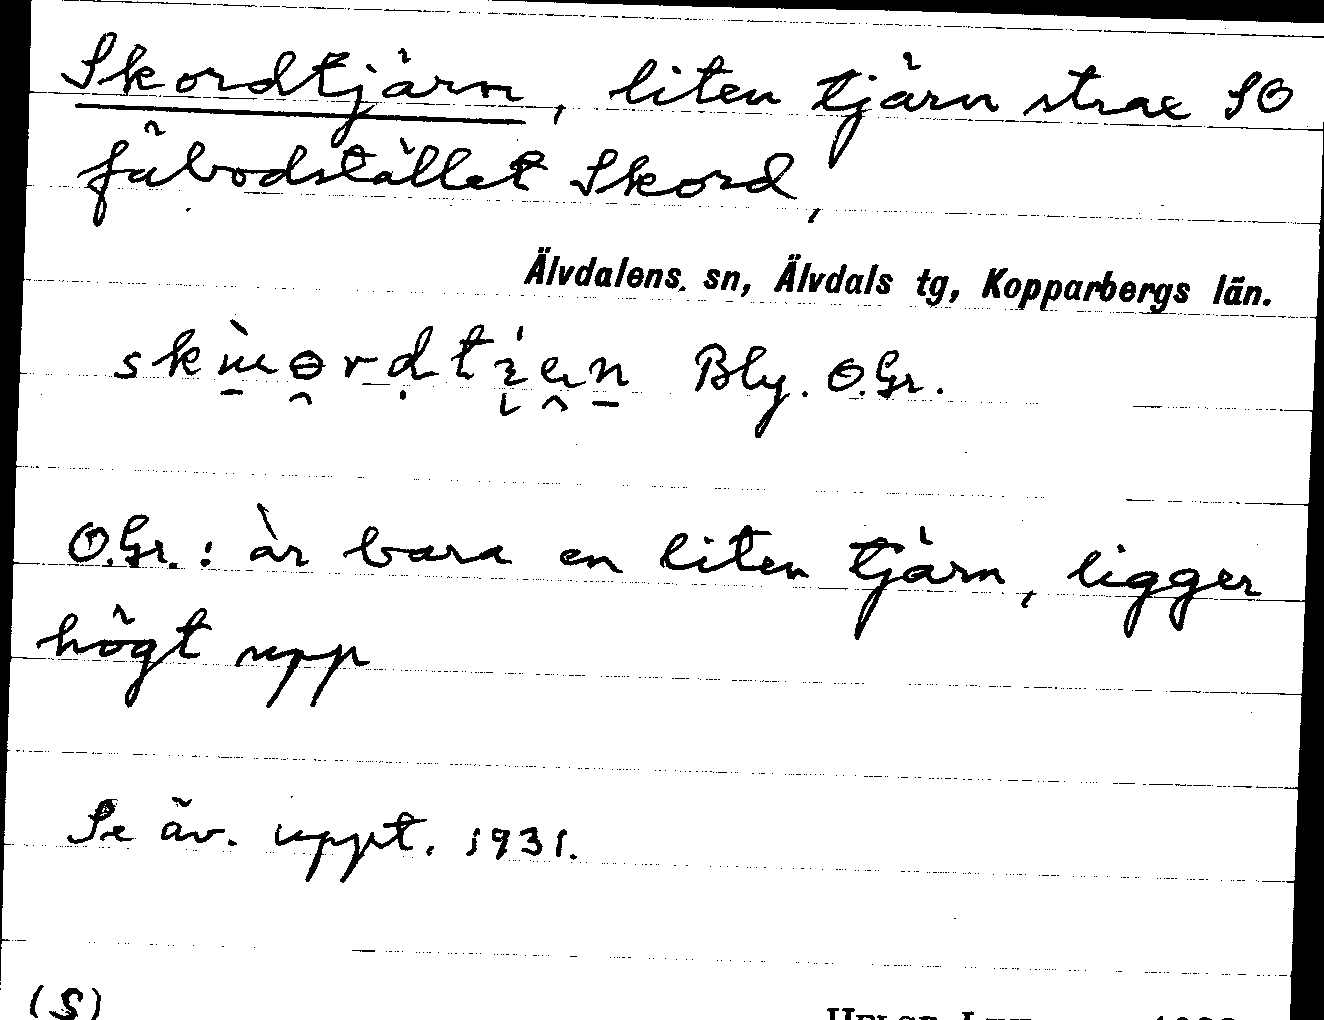 Skordtjärn, liten tjärn strax SO
fäbodstället Skord,
Älvdalens sn, Älvdals tg, Kopparbergs län.
Bly. O.Gr.
O.Gr.: är bara en liten tjärn, ligger
högt upp
Se äv. uppt. 1931.
(S)